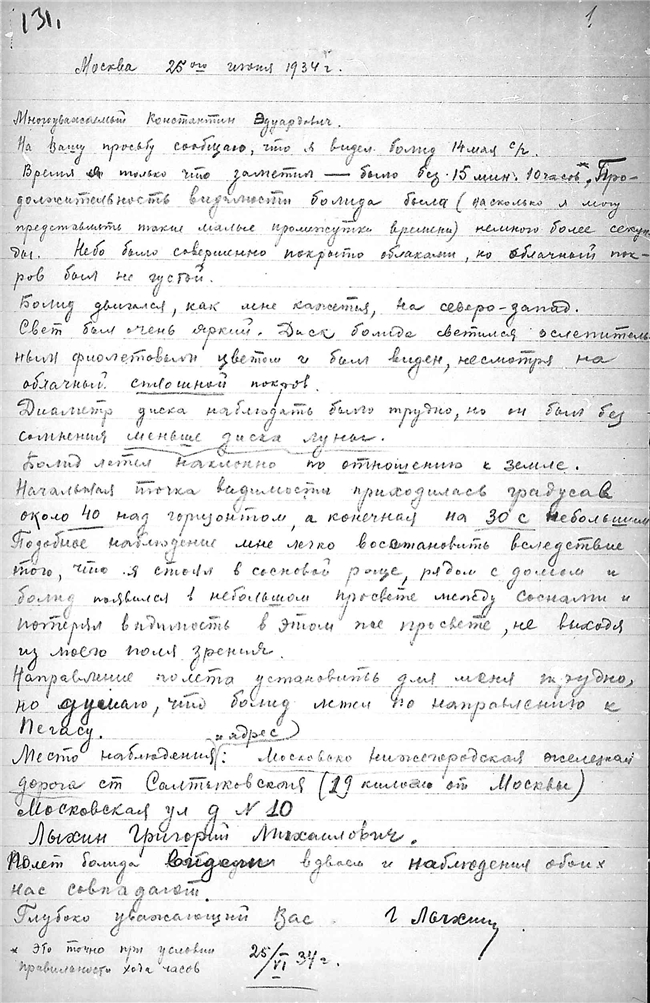 131.
1
Москва 25ого июня 1934 г.
Многоуважаемый Константин Эдуардович.
На Вашу просьбу сообщаю, что я видел болид 14 мая с/г.
Время я только что заметил — было без 15 мин. 10 часов*. Про-
должительность видимости болида была (насколько я могу
представить такие малые промежутки времени) немного более секун-
ды. Небо было совершенно покрыто облаками, но облачный пок-
ров был не густой.
Болид двигался, как мне кажется, на северо-запад.
Свет был очень яркий. Диск болида светился ослепитель-
ным фиолетовым цветом и был виден, несмотря на
облачный сплошной покров.
Диаметр диска наблюдать было трудно, но он был без
сомнения меньше диска луны.
Болид летел наклонно по отношению к земле.
Начальная точка видимости приходилась градусав
около 40 над горизонтом, а конечная на 30 с небольшим
Подобное наблюдение мне легко восстановить вследствие
того, что я стоял в сосновой роще, рядом с домом и
болид появился в небольшом просвете между соснами и
потерял видимость в этом же просвете, не выходя
из моего поля зрения.
Направление полета установить для меня трудно,
но думаю, что болид летел по направлению к
Пегасу.
и адрес
Место наблюдения: Московско Нижегородская железная
дорога ст Салтыковская (19 кило от Москвы)
Московская ул д N 10
Лыхин Григорий Михаилович.
Полет болида видели вдвоем и наблюдения обоих
нас совпадают.
Глубоко уважающий Вас. Г Лыхин
* Это точно при условии
правильности хода часов
25/VI 34 г.